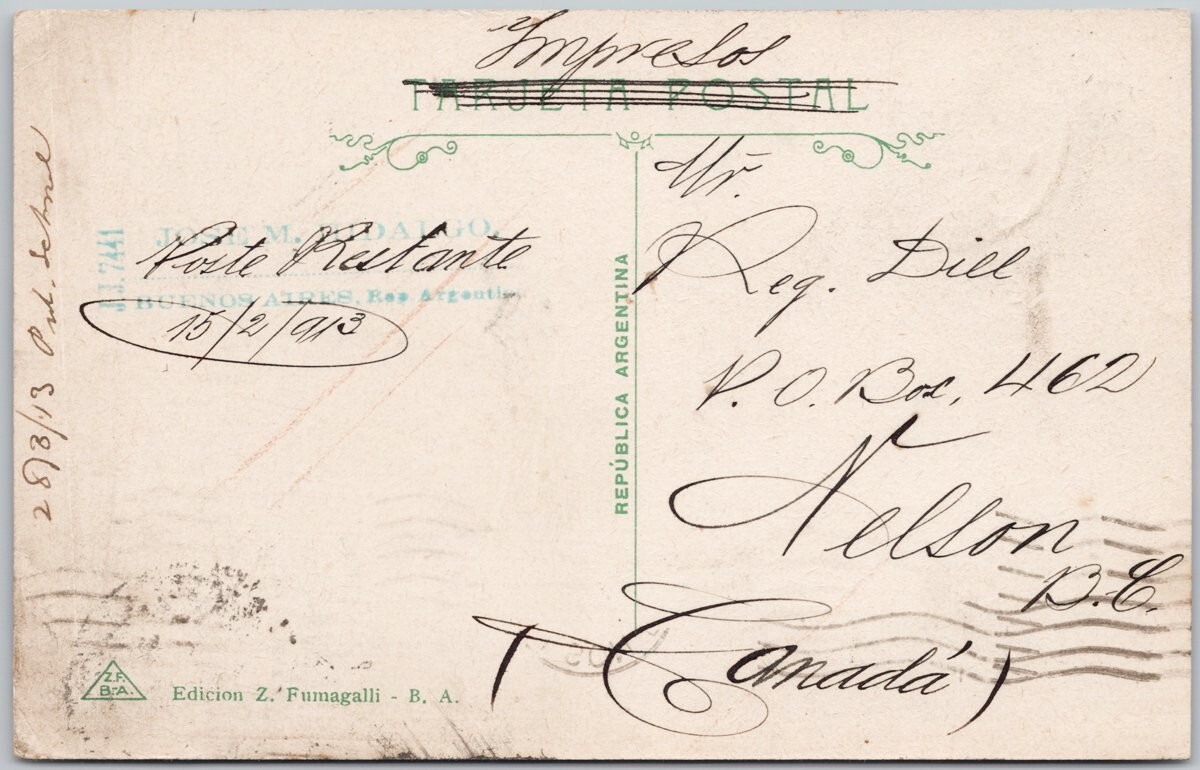 Impresos
TARJETA POSTAL
JOSE M. HIDALGO,
Poste Restante
BUENOS AIRES, Rep Argentin
15/2/913
7441
28/3/13
REPÚBLICA ARGENTINA
Mr.
Reg. Dill
P. O. Box, 462
Nelson
B.C.
(Canadá)
Z.F.
B-A.
Edicion Z. Fumagalli - B. A.